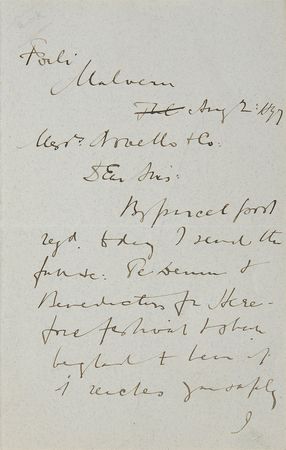 Forli
Malvern
Aug 2: 1897
Messrs Novello & Co.
Dear Sirs:
By parcel post
regd. today I send the
full sc: Te Deum &
Benedictus for Here-
ford festival & shall
be glad to hear if
it reaches you safely
I